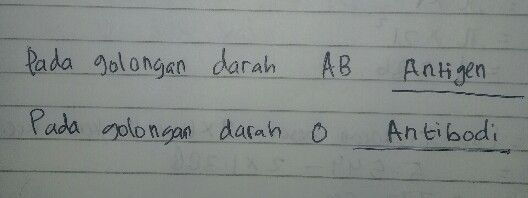 Pada golongan darah AB Antigen
Pada golongan darah O Antibodi